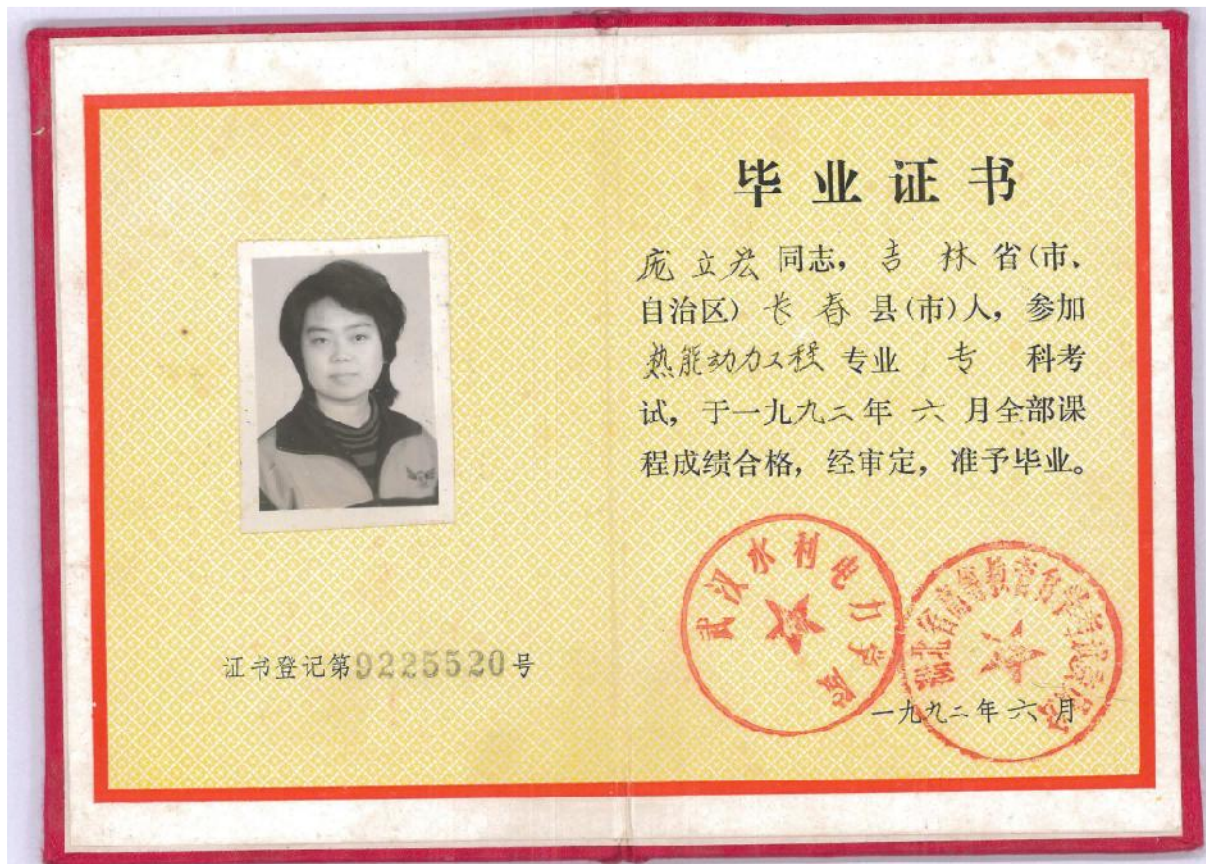 毕业证书
庞立宏同志，吉林省（市、
自治区）长春县（市）人，参加
热能动力工程专业 专 科考
试，于一九九二年六月全部课
程成绩合格，经审定，准予毕业。
武汉水利电力学院
湖北省高等教育自学考试委员会
一九九二年六月
证书登记第9225520号